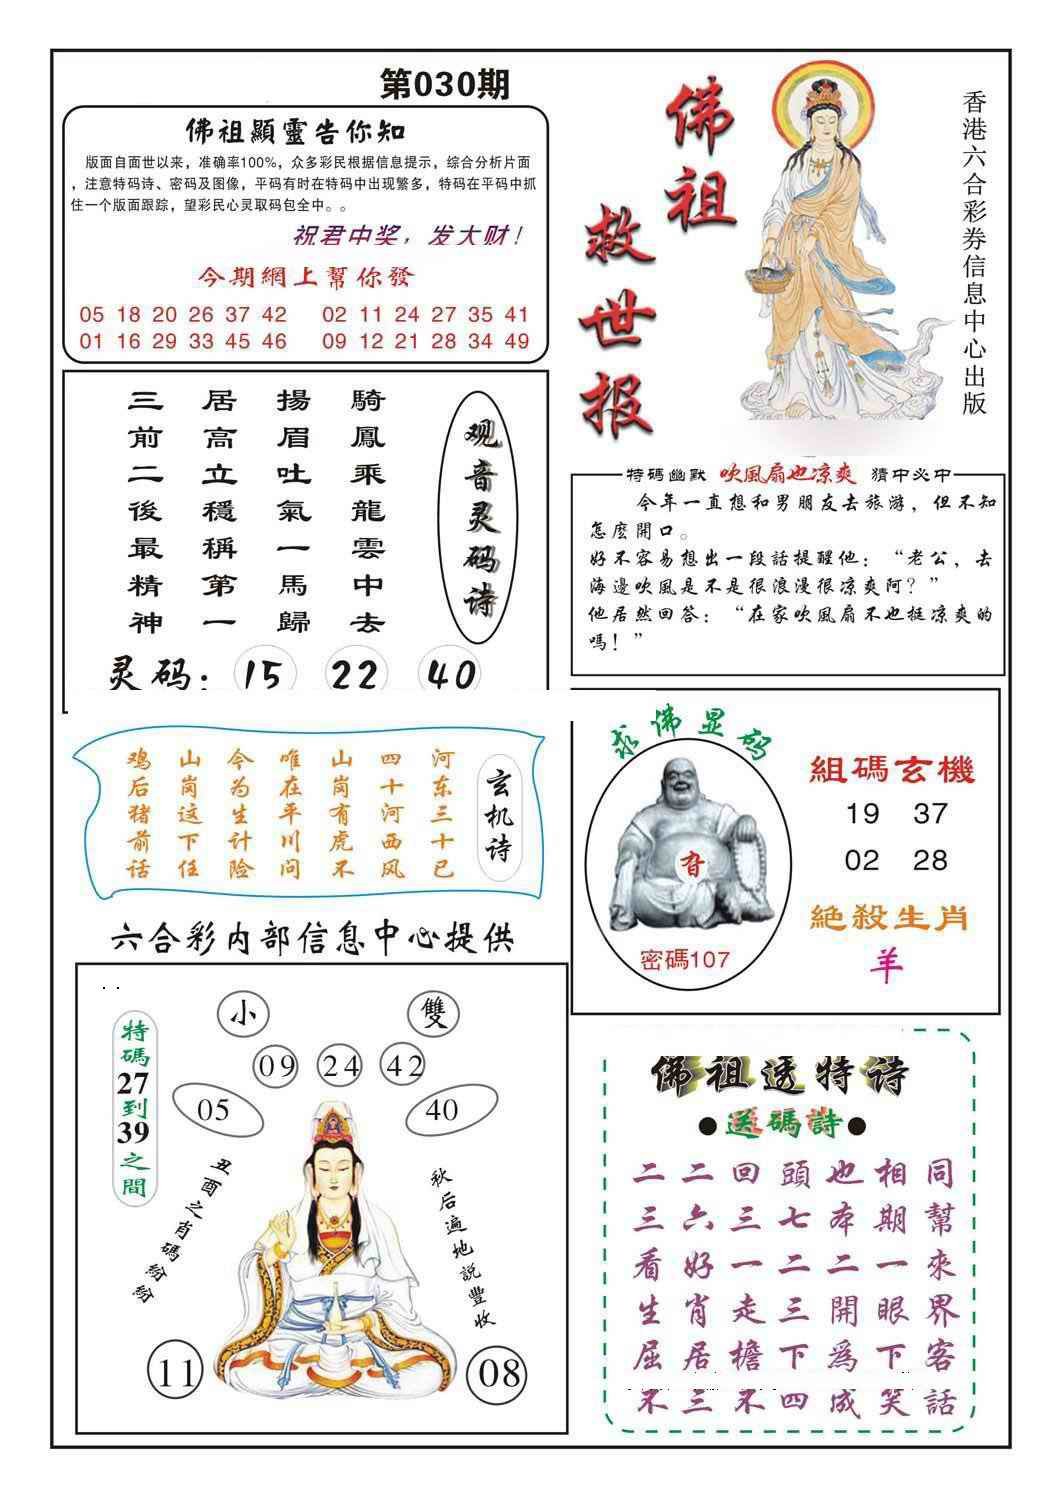 第030期
佛祖顯靈告你知
版面自面世以来，准确率100%，众多彩民根据信息提示，综合分析片面
，注意特码诗、密码及图像，平码有时在特码中出现繁多，特码在平码中抓
住一个版面跟踪，望彩民心灵取码包全中。。
祝君中奖，发大财！
今期網上幫你發
05 18 20 26 37 42 02 11 24 27 35 41
01 16 29 33 45 46 09 12 21 28 34 49
佛祖
救世报
香港六合彩券信息中心出版
观音灵码诗
騎鳳乘龍雲中去
揚眉吐氣一馬歸
居高立穩稱第一
三前二後最精神
灵码：15 22 40
特碼幽默 吹風扇也凉爽 猜中必中
今年一直想和男朋友去旅游，但不知
怎麽開口。
好不容易想出一段話提醒他：“老公，去
海邊吹風是不是很浪漫很凉爽阿？”
他居然回答：“在家吹風扇不也挺凉爽的
嗎！”
玄机诗
河东三十已
四十河西风
山岗有虎不
唯在平川问
今为生计险
山岗这下任
鸡后猪前话
求佛显码
密碼107
組碼玄機
19 37
02 28
絶殺生肖
羊
六合彩内部信息中心提供
特碼27到39之間
小 雙
09 24 42
05 40
丑酉之肖碼紛紛
秋后遍地説豐收
11 08
佛祖透特诗
●送碼詩●
二二回頭也相同
三六三七本期幫
看好一二二一來
生肖走三開眼界
屈居檐下爲下客
不三不四成笑話